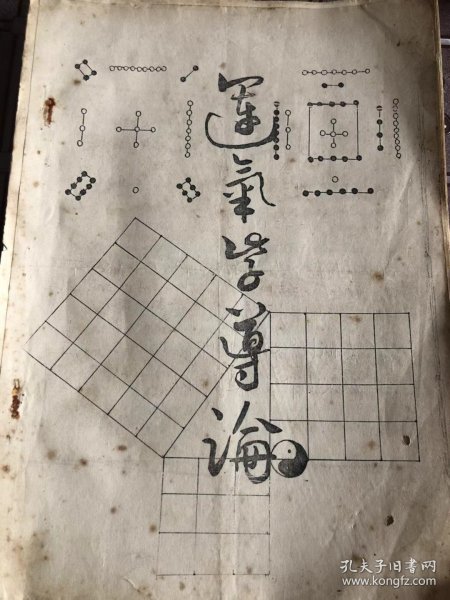 運氣学導論
孔夫子旧书网
www.kongfz.com